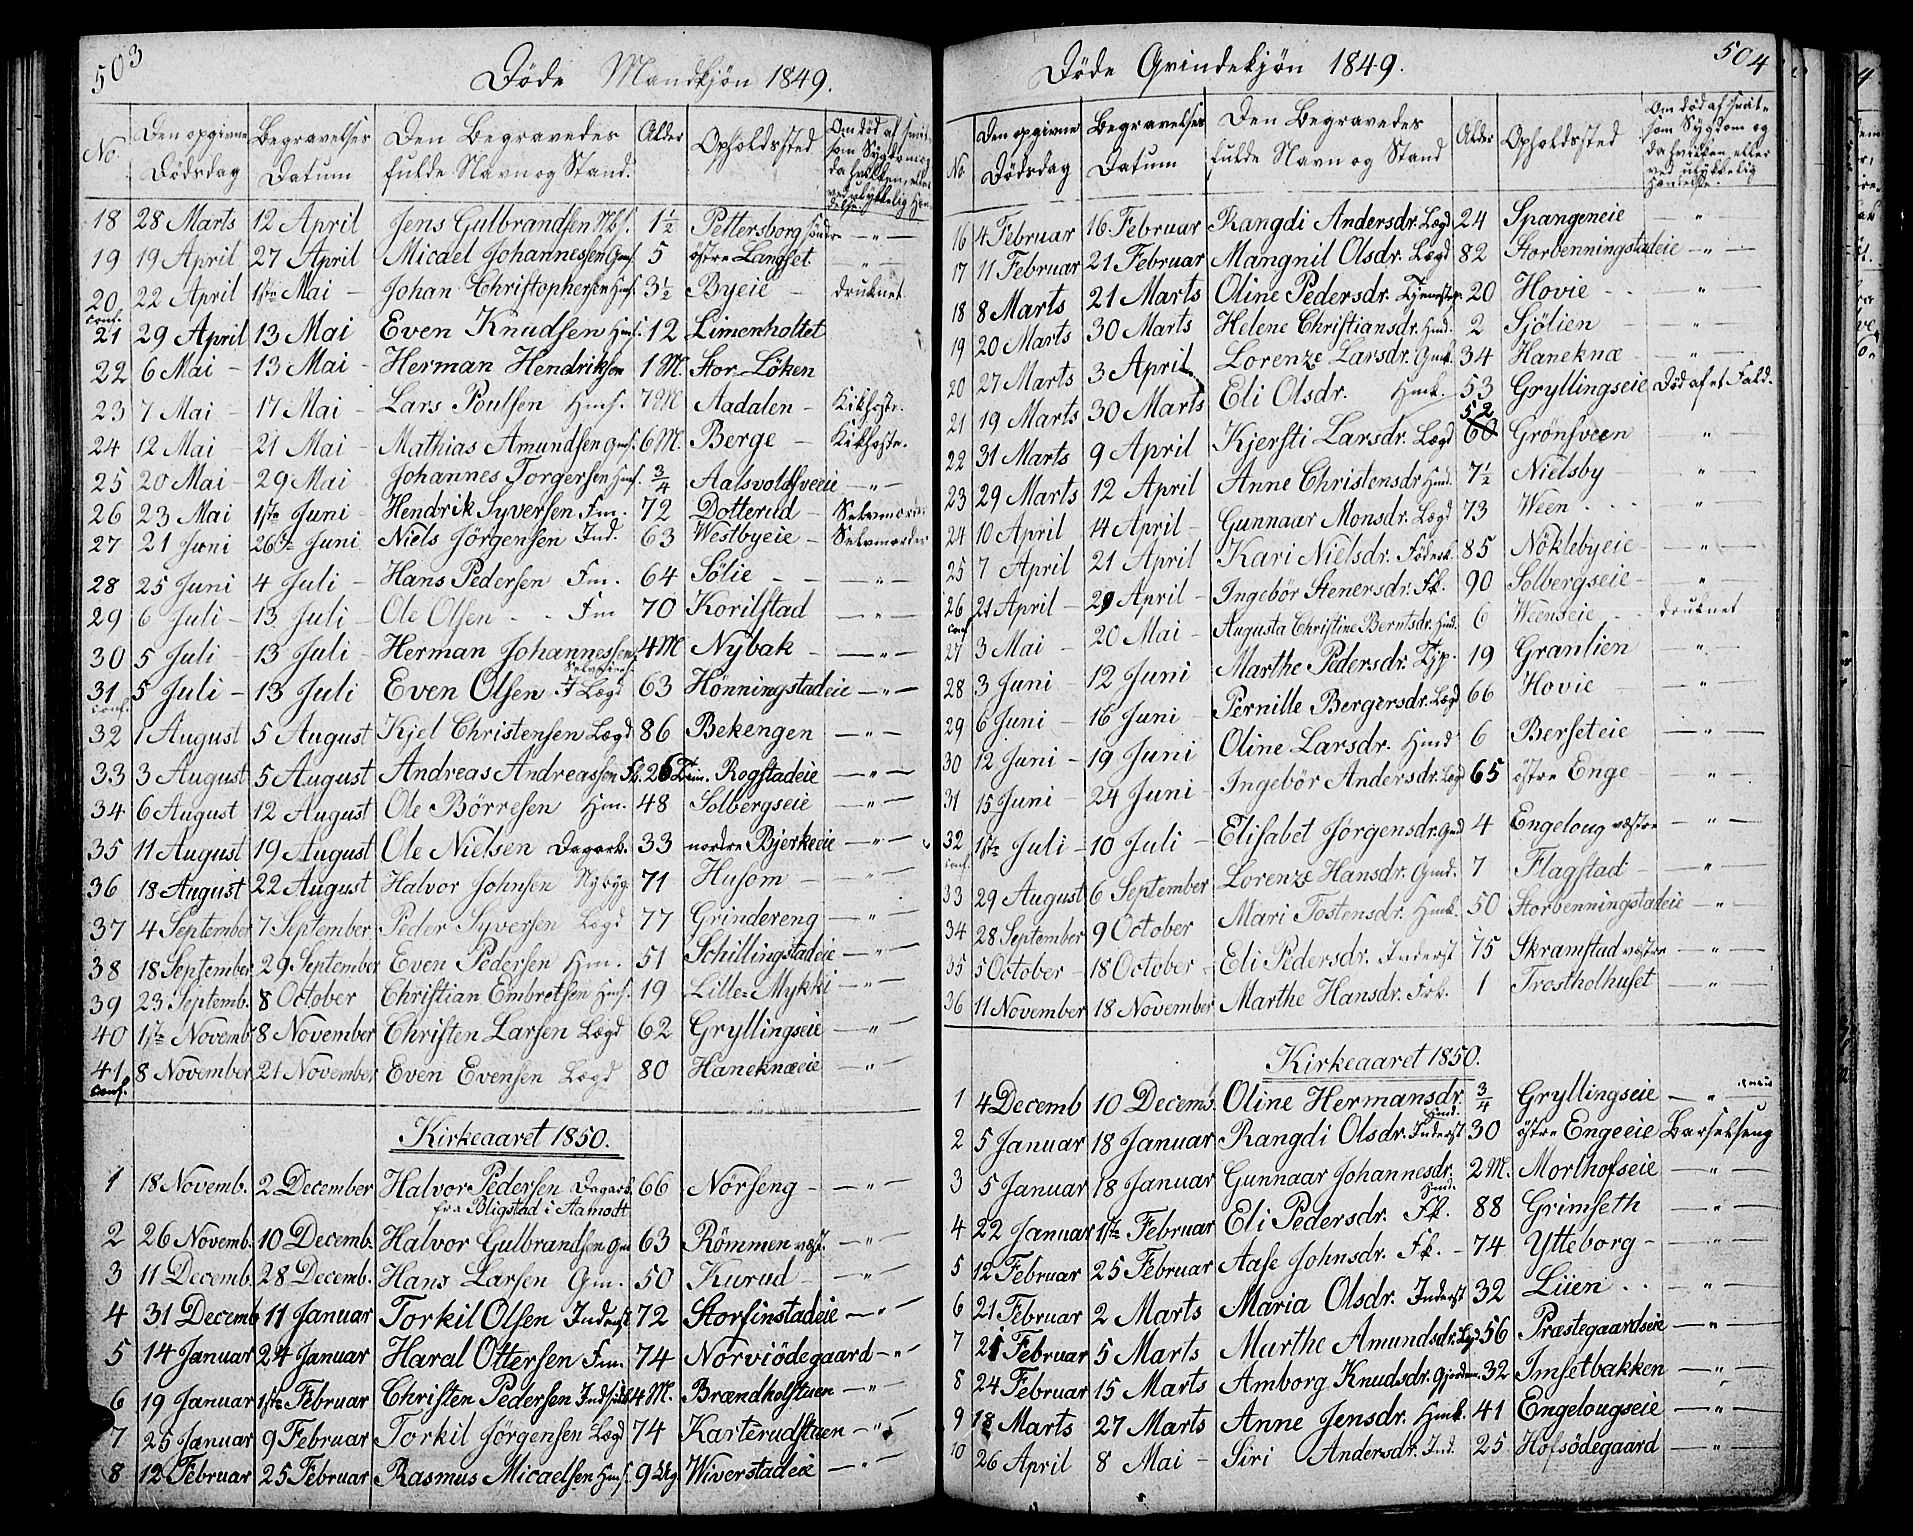 503
Döde Mandkjön 1849.
No
Den opgivne Dödsdag
Begravelses Datum
Den Begravedes fulde Navn og Stand.
Alder
Opholdssted
Om död af smitsom Sygdom og da hvilken, eller ved ulykkelig Hendelse.
18 28 Marts 12 April Jens Gulbrandsen 1½ Pettersborg söndre — " —
19 19 April 27 April Micael Johannessen Gms. 5 östre Langset — " —
20 22 April 1ste Mai – Johan Christophersen Hms. 3½ Byeie – druknet
conf.
21 29 April 13 Mai Even Knudsen Hms. 12 Limenholtet
22 6 Mai – 13 Mai – Herman Hendriksen 1 M. Stor-Löken
23 7 Mai – 17 Mai – Lars Poulsen Hms. 7 M Aadalen – Kikhoste.
24 12 Mai 21 Mai – Mathias Amundsen Gms. 6 M. Berge – Kikhoste.
25 20 Mai – 29 Mai – Johannes Torgersen Hms. ¾ Aalsvoldsveeie — " —
26 23 Mai 1ste Juni – Hendrik Syversen Fm. 72 Dotterud – Selvmorder
27 21 Juni 26de Juni Niels Jörgensen Ind. 63 Westbyeie – Selvmorder
28 25 Juni 4 Juli – Hans Pedersen Fm. 64 Sölie – — " —
29 6 Juli – 13 Juli – Ole Olsen – Fm 70 Korilstad — " —
30 5 Juli – 13 Juli – Herman Johannessen 4 M Nybak – — " —
31 5 Juli – 13 Juli Even Olsen Lægd 63 Hönningstadeie — " —
conf.
32 1 August 5 August Kjel Christensen Lægd 86 Bekengen — " —
33 3 August 5 August Andreas Andreassen 26 Tim. Rogstadeie — " —
34 6 August 12 August Ole Börresen Hm. 48 Solbergseie — " —
35 11 August 19 August Ole Nielsen Dagark. 33 nordre Bjerkeeie — " —
36 18 August 22 August Halvor Johnsen Nybyg. 71 Husom – — " —
37 4 September 7 September Peder Syversen Lægd 77 Grindereng — " —
38 18 September 29 September Even Pedersen Hm. 51 Schillingstadeie — " —
39 23 Septemb. 8 October Christian Embretsen Hms. 19 Lille-Mykki — " —
40 1ste Novemb. 8 November Christen Larsen Lægd 62 Gryllingseie — " —
41 8 November 21 November Even Evensen Lægd 80 Haneknæeie — " —
conf.
Kirkeaaret 1850.
1 18 Novemb. 2 December Halvor Pedersen Dagark. 66 Nörseng – — " —
fra Bligstad i Aamodt
2 26 Novemb. 10 Decemb. Halvor Gulbrandsen Gm 63 Römmen vest. — " —
3 11 Decemb. 28 Decemb. Hans Larsen Gm. 50 Kurud – — " —
4 31 Decemb 11 Januar Torkil Olsen Inderst 72 Storfinstadeie — " —
5 14 Januar 24 Januar Haral Ottersen Fm. 74 Norviödegaard — " —
6 19 Januar 1ste Februar Christen Pedersen 4 M. Brændholstuen — " —
7 25 Januar 9 Februar Torkil Jörgensen Lægd 74 Karterudstuen — " —
8 12 Februar 25 Februar Rasmus Micaelsen Hms. 9 Wiverstadeie — " —
504
Döde Qvindekjön 1849.
No
Den opgivne Dödsdag
Begravelses Datum
Den Begravedes fulde Navn og Stand
Alder
Opholdssted
Om död af smitsom Sygdom og da hvilken eller ved ulykkelig Hændelse.
16 4 Februar 16 Februar Rangdi Andersdr. Lægd 24 Spangeneie — " —
17 11 Februar 21 Februar Mangnil Olsdr. Lægd 82 Storbenningstadeie — " —
18 8 Marts 21 Marts Oline Pedersdr. Tjenestp. 20 Hovie – — " —
19 20 Marts 30 Marts Helene Christiansdr. Hmd. 2 Sjölien — " —
20 27 Marts 3 April Lorenze Larsdr. Gmk. 34 Haneknæ — " —
21 19 Marts 30 Marts Eli Olsdr. Hmk. 53 Gryllingseie Död af et Fald.
22 31 Marts 9 April Kjersti Larsdr. Lægd 60 52 Grönsveen — " —
23 29 Marts 12 April Anne Christensdr Hmd. 7½ Nielsby — " —
24 10 April 14 April – Gunnaar Monsdr. Lægd 73 Ween . . — " —
25 7 April 21 April Kari Nielsdr. Föderk. 85 Nöklebyeie — " —
26 21 April – 29 April – Ingebör Stenersdr. Fk. 90 Solbergseie — " —
conf
27 3 Mai – 20 Mai – Augusta Christine Berntsdr. Hmd. 6 Weenseie druknet
28 3 Juni – 12 Juni Marthe Pedersdr. Tjp. 19 Granlien — " —
29 6 Juni – 16 Juni – Pernille Bergersdr. Lægd 66 Hovie — " —
30 12 Juni – 19 Juni Oline Larsdr. Hmd 6 Berseteie — " —
31 15 Juni – 24 Juni – Ingebör Andersdr. Lægd 65 östre Enge – — " —
32 1ste Juli – 10 Juli – Elisabet Jörgensdr. Gmd 4 Engeloug væstre — " —
conf
33 29 August 6 September Lorenze Hansdr. Gmd. 7 Flagstad – — " —
34 28 September 9 October Mari Tostensdr. Hmk. 50 Storbenningstadeie — " —
35 5 October – 18 October – Eli Pedersdr. Inderst 75 Skramstad væstre — " —
36 11 November 18 November Marthe Hansdr. Fik. 1 Trostholhuset — " —
Kirkeaaret 1850.
1 4 Decemb 10 Decemb. Oline Hermansdr. Hmd. ¾ Gryllingseie — " —
2 5 Januar 18 Januar Rangdi Olsdr. Inderst 30 östre Engeeie Barselseng
3 5 Januar 18 Januar Gunnaar Johannesdr. Hmd. 2 M. Morthofseie — " —
4 22 Januar 1ste Februar Eli Pedersdr. Fk. 88 Grimseth — " —
5 12 Februar 25 Februar Aase Johnsdr. Fk. – 74 Ytteborg – — " —
6 21 Februar 2 Marts Maria Olsdr. Inderst 32 Liien . . — " —
7 21 Februar 5 Marts Marthe Amundsdr. Lægd 56 Præstegaardseie — " —
8 24 Februar 15 Marts Amborg Knudsdr. 32 Imsetbakken — " —
9 18 Marts 27 Marts Anne Jensdr. Hmk. 41 Engelougseie — " —
10 26 April 8 Mai – Siri Andersdr. Ind. 25 Hofsödegaard — " —